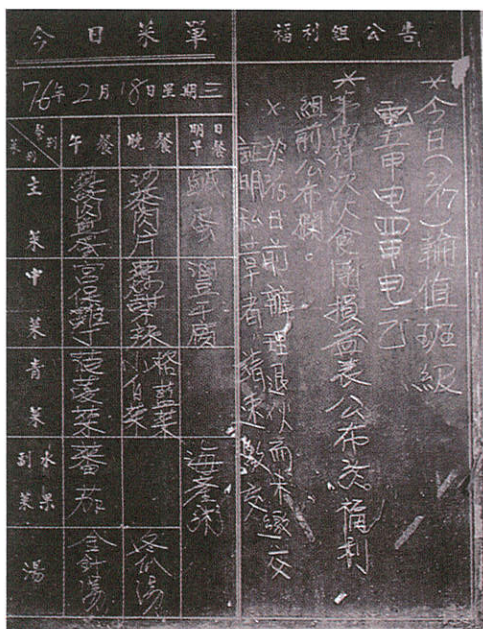 今日菜單
76年2月18日星期三
菜別 餐別 午餐 晚餐 明日早餐
主菜 滷肉魚蛋 沙茶肉片 鹹蛋
中菜 宮保雞丁
青菜 菠菱菜 格藍菜 小白菜
水果副菜 蕃茄 海產粥
湯 金針湯 冬瓜湯
福利組公告
*今日(2/17)輪值班級
電五甲电四甲电二乙
*第四梯次伙食團損益表公布於福利
組前公布欄。
* 於15日前辦理退伙而未繳交
証明私章者,請速繳交